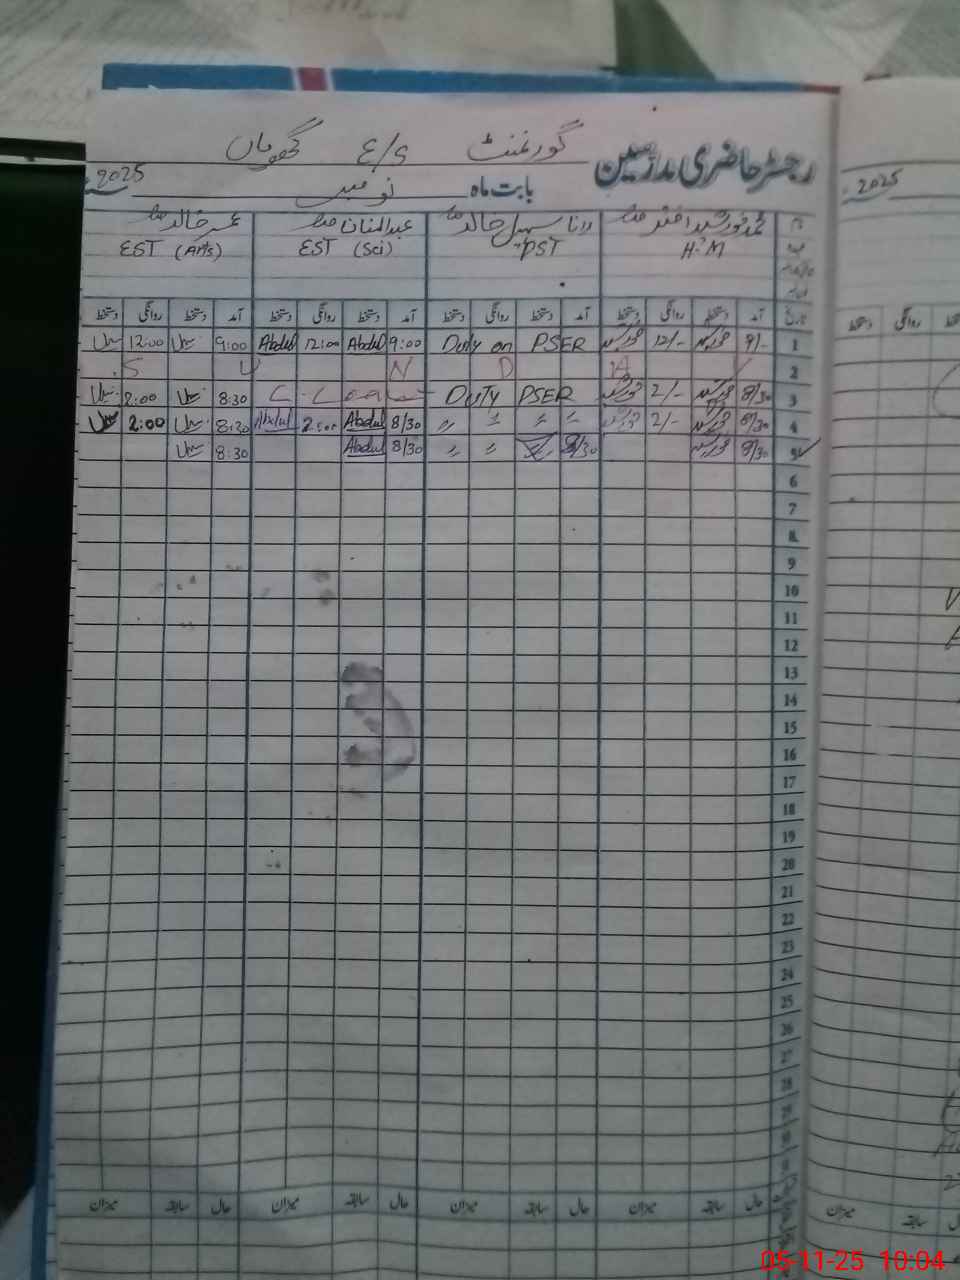 رجسٹر حاضری مدرسین گورنمنٹ E/S
بابت ماہ نومبر 2025
2025
رانا سہیل خالد عبدالمنان عمر خالد
H.M PST EST (Sci) EST (Arts)
تاریخ آمد دستخط روانگی دستخط آمد دستخط روانگی دستخط آمد دستخط روانگی دستخط آمد دستخط روانگی دستخط
روانگی دستخط
1 9/- 12/- Duty on PSER 9:00 Abdul 12:00 Abdul 9:00 12:00
2 S U N D A Y
3 8/30 2/- Duty PSER C. Leave 8:30 2:00
4 8/30 2/- 〃 〃 〃 8/30 Abdul 2:00 Abdul 8:30 2:00
5 8/30 8/30 〃 〃 8/30 Abdul 8:30
6
7
8
9
10
11
12
13
14
15
16
17
18
19
20
21
22
23
24
25
26
27
28
29
30
حال سابقہ میزان حال سابقہ میزان حال سابقہ میزان حال سابقہ میزان
سابقہ میزان
05-11-25 10:04